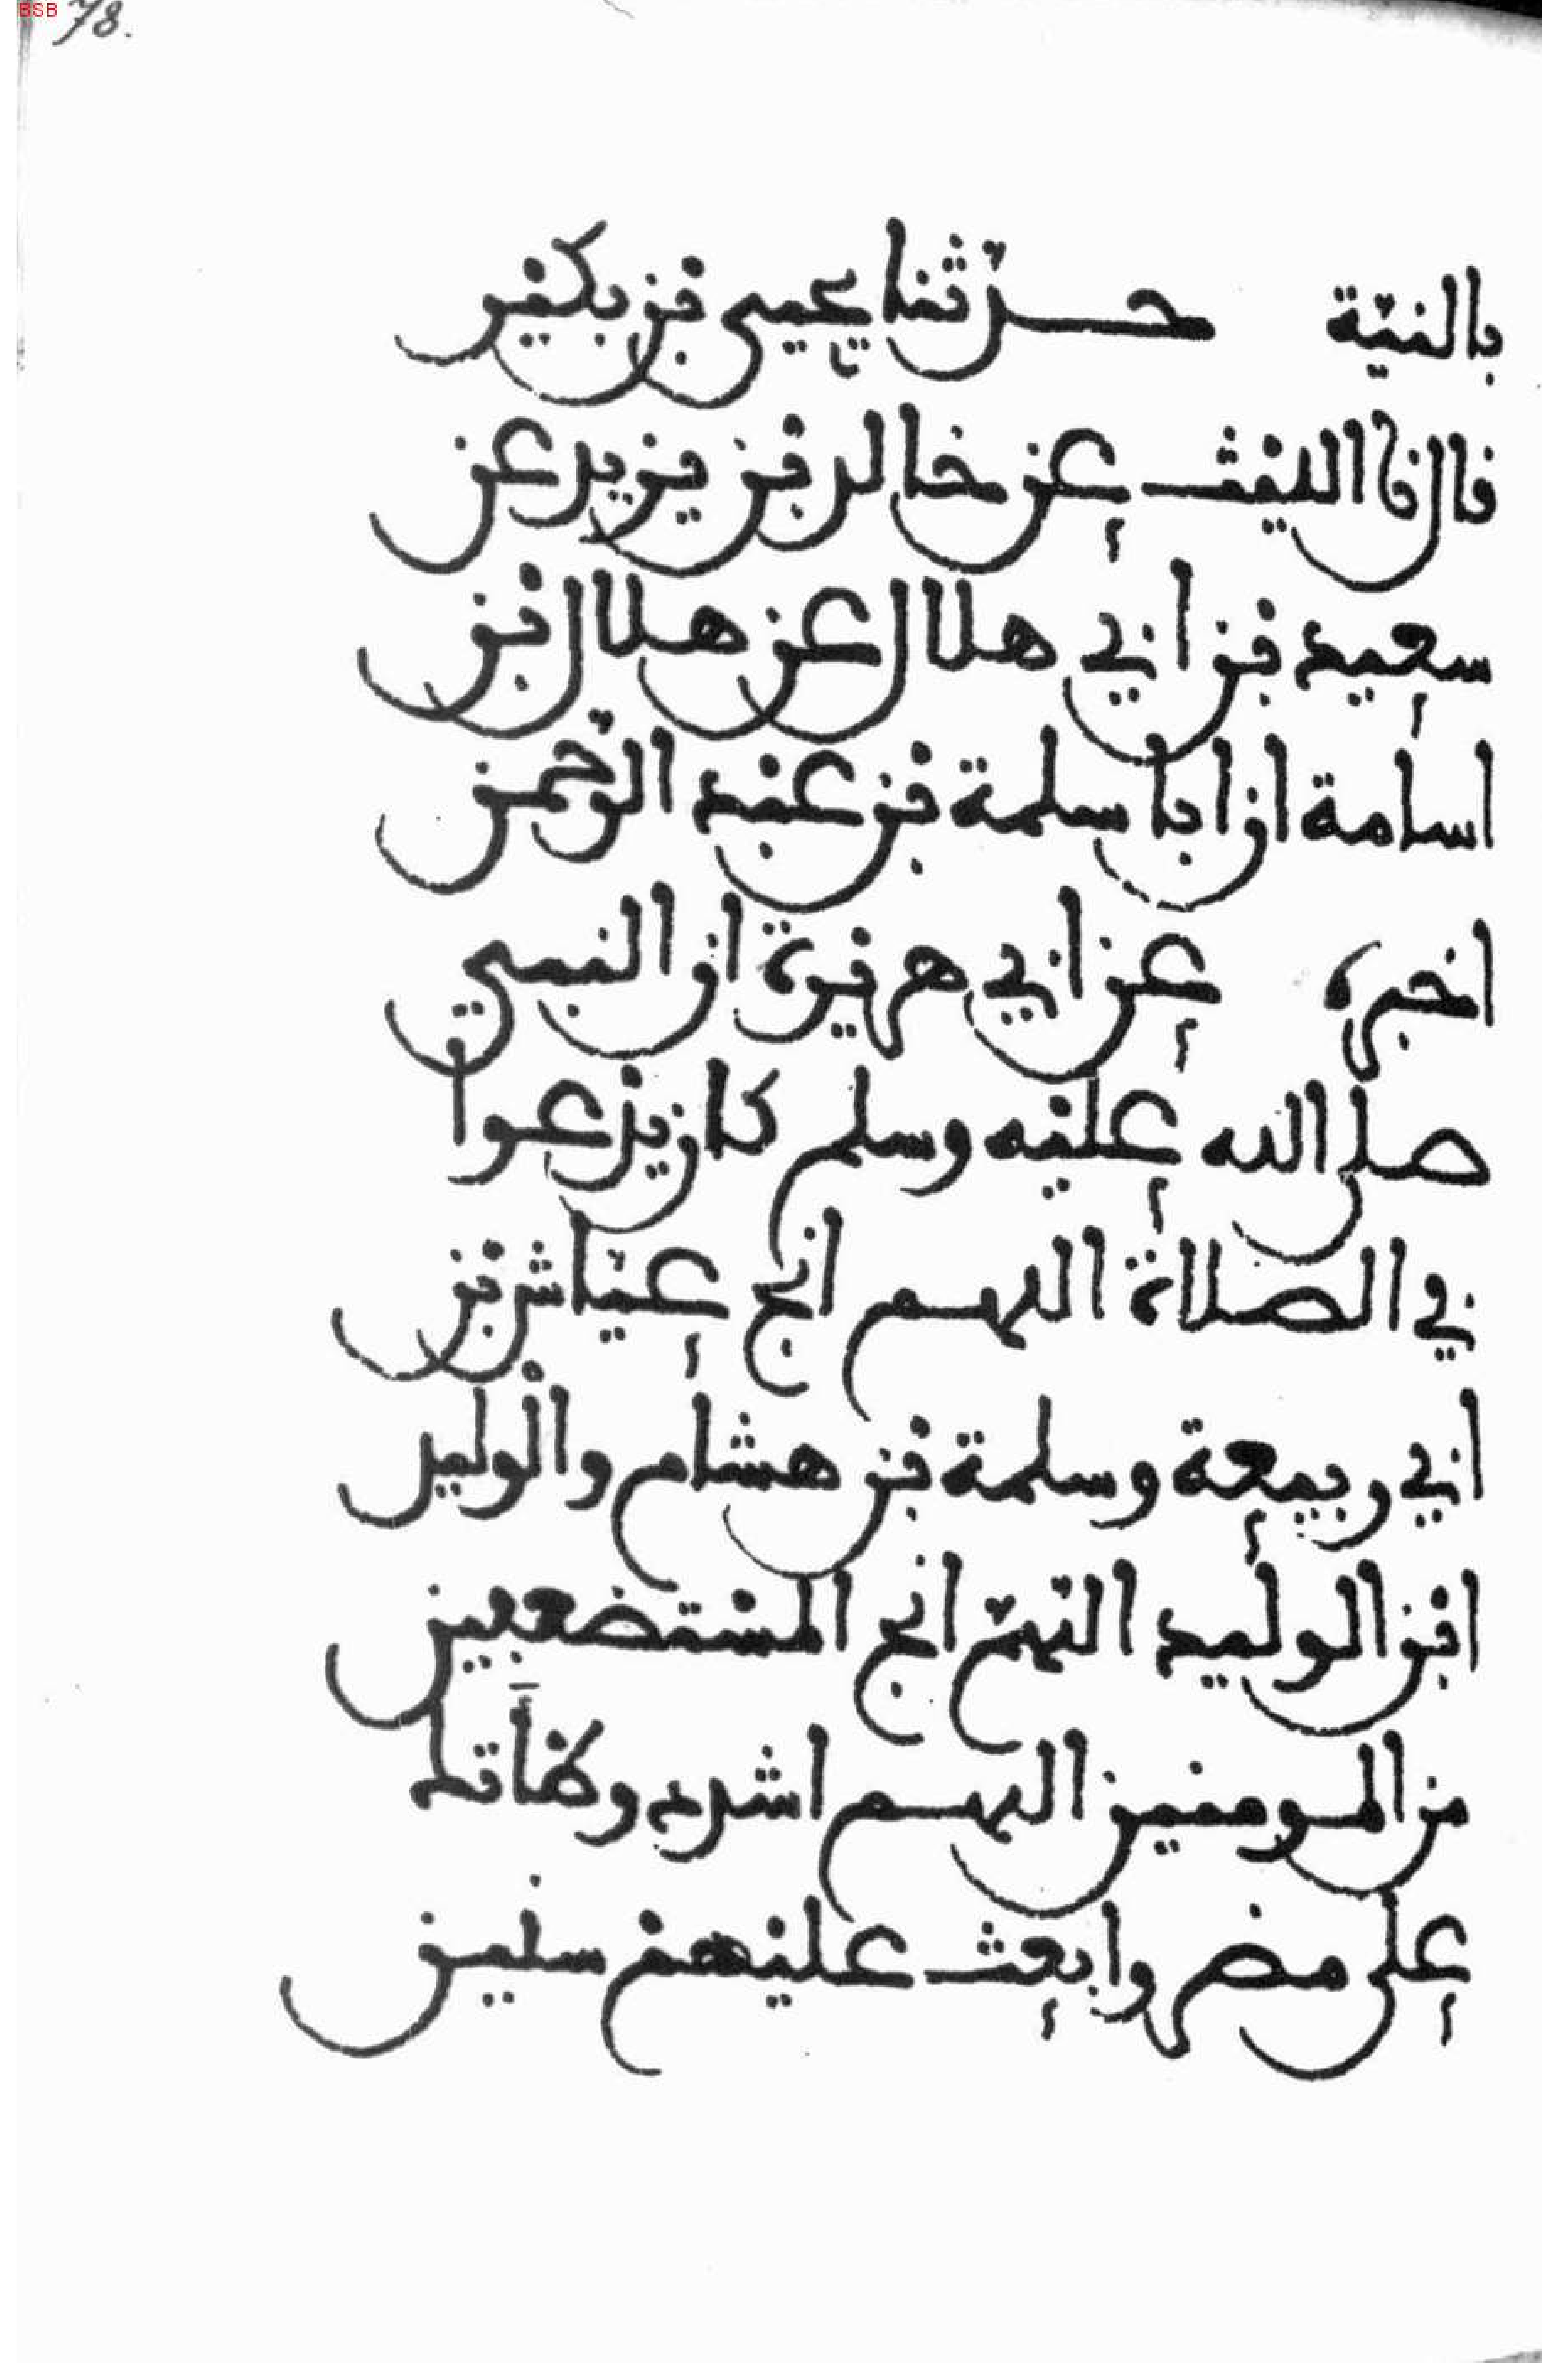 78.
بالنية حدثنا يحيى بن بكير
قال نا الليث عن خالد بن يزيد عن
سعيد بن ابي هلال عن هلال بن
اسامة ان ابا سلمة بن عبد الرحمن
اخبره عن ابي هريرة ان النبي
صلى الله عليه وسلم كان يدعوا
في الصلاة اللهم انج عياش بن
ابي ربيعة وسلمة بن هشام والوليد
ابن الوليد اللهم انج المستضعفين
من المومنين اللهم اشدد وطأتك
على مضر وابعث عليهم سنين